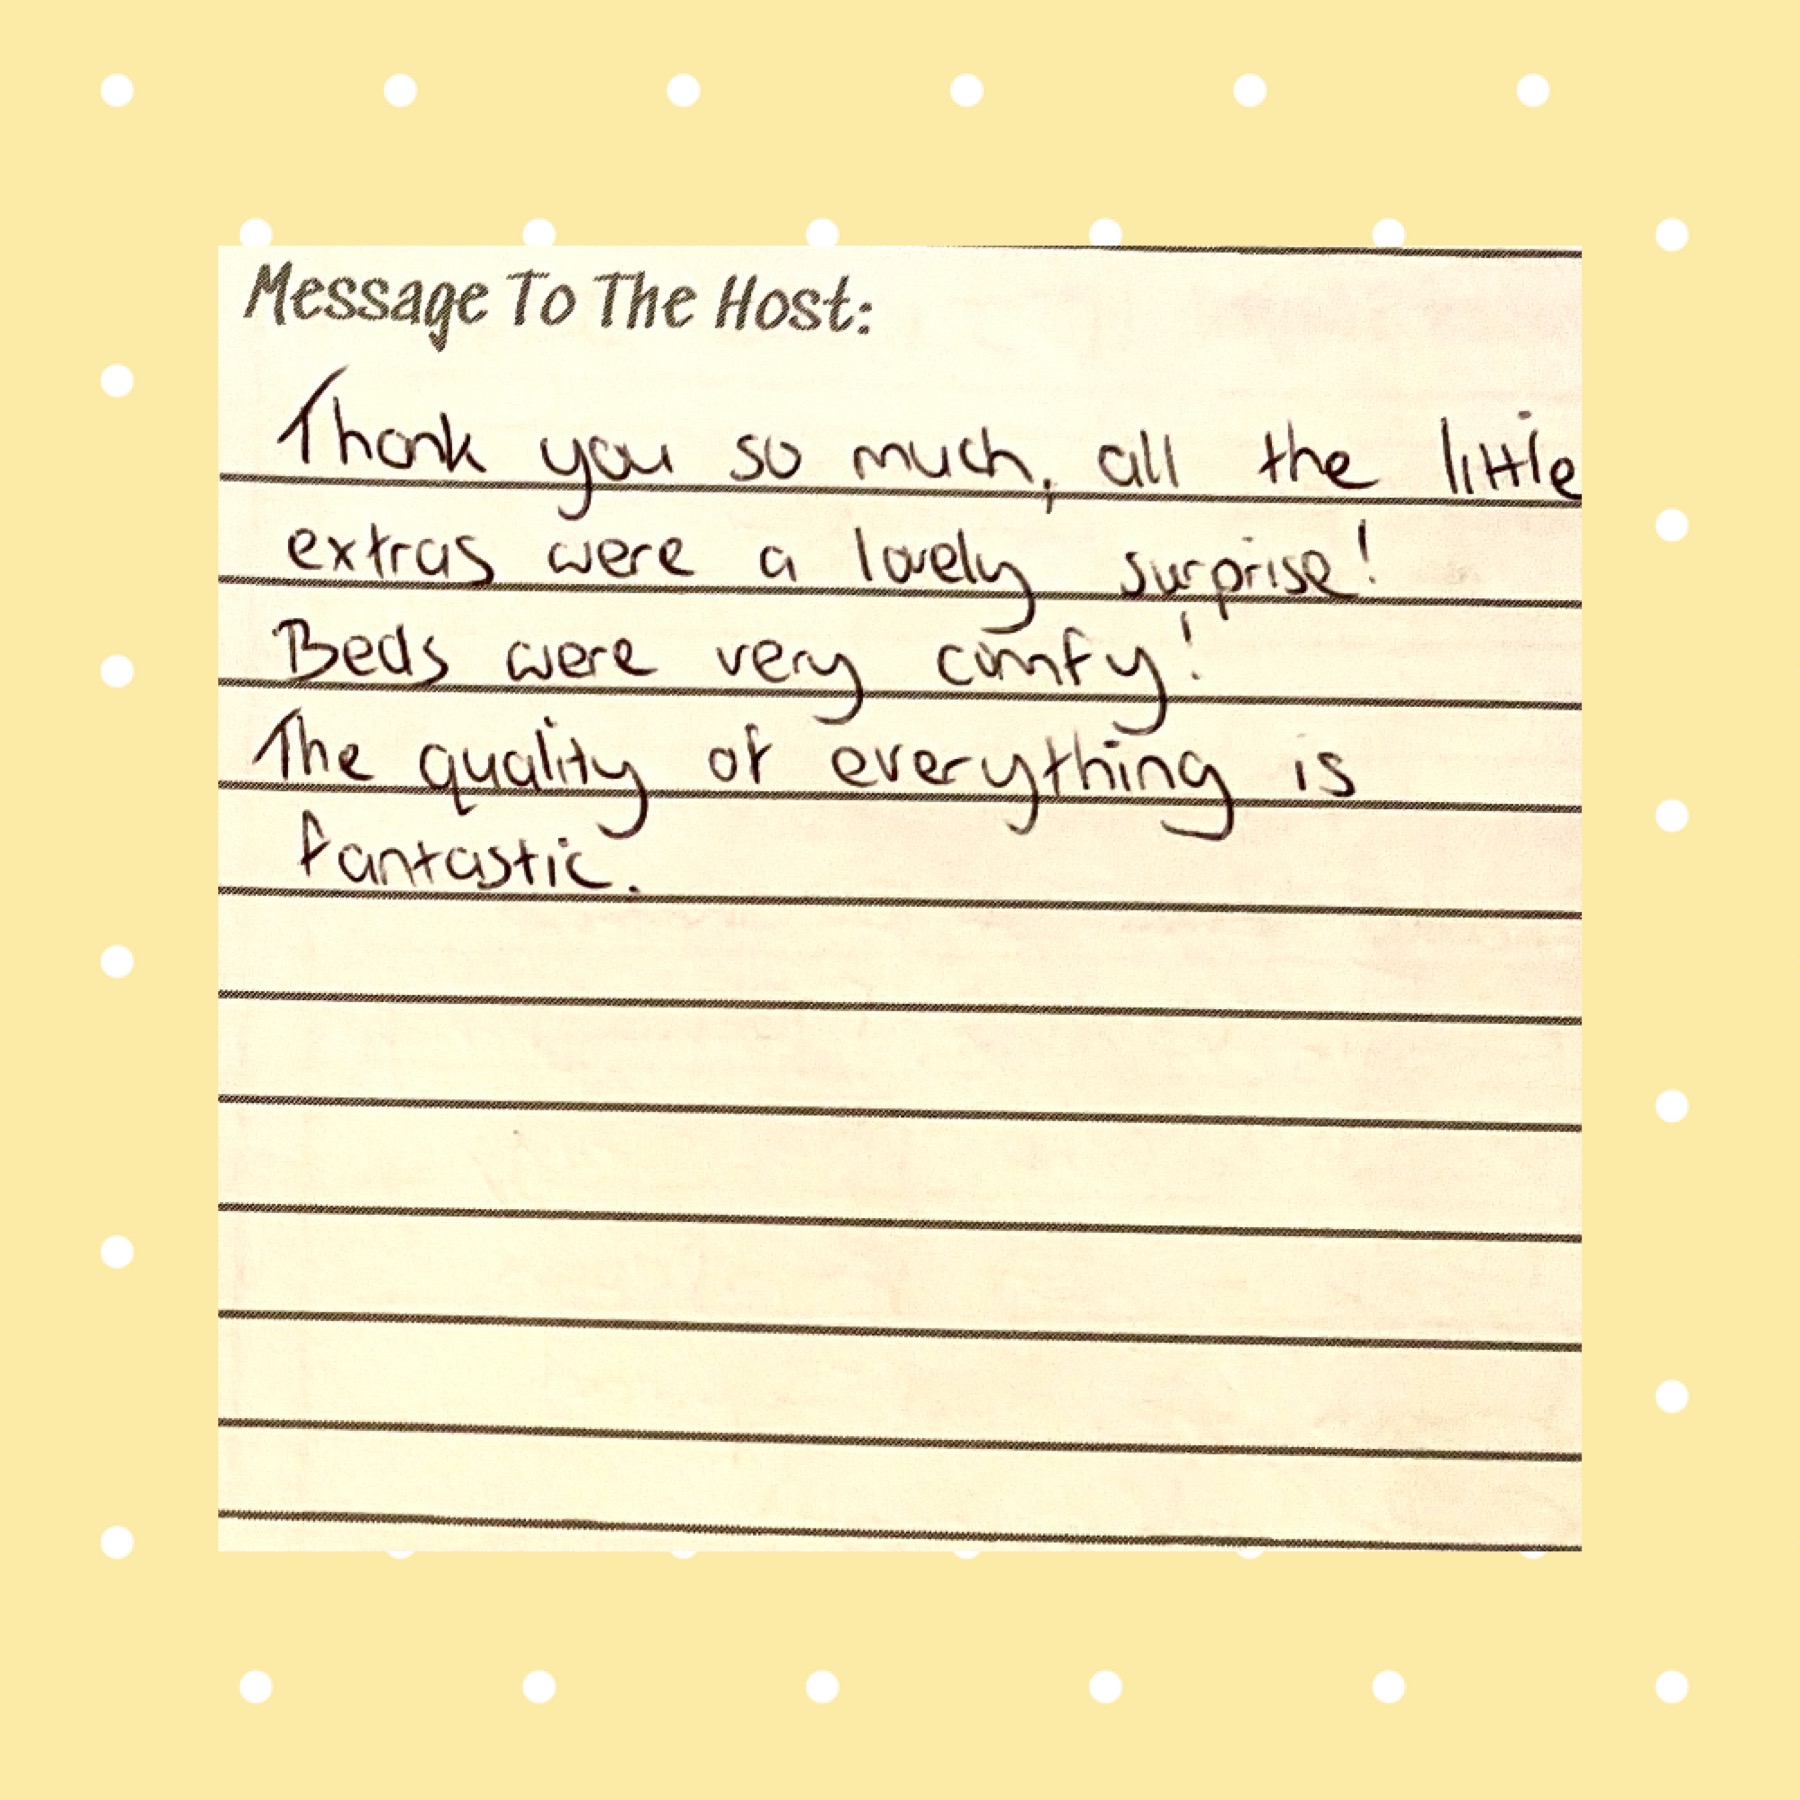 Message To The Host:
Thank you so much, all the little
extras were a lovely surprise!
Beds were very comfy!
The quality of everything is
fantastic.